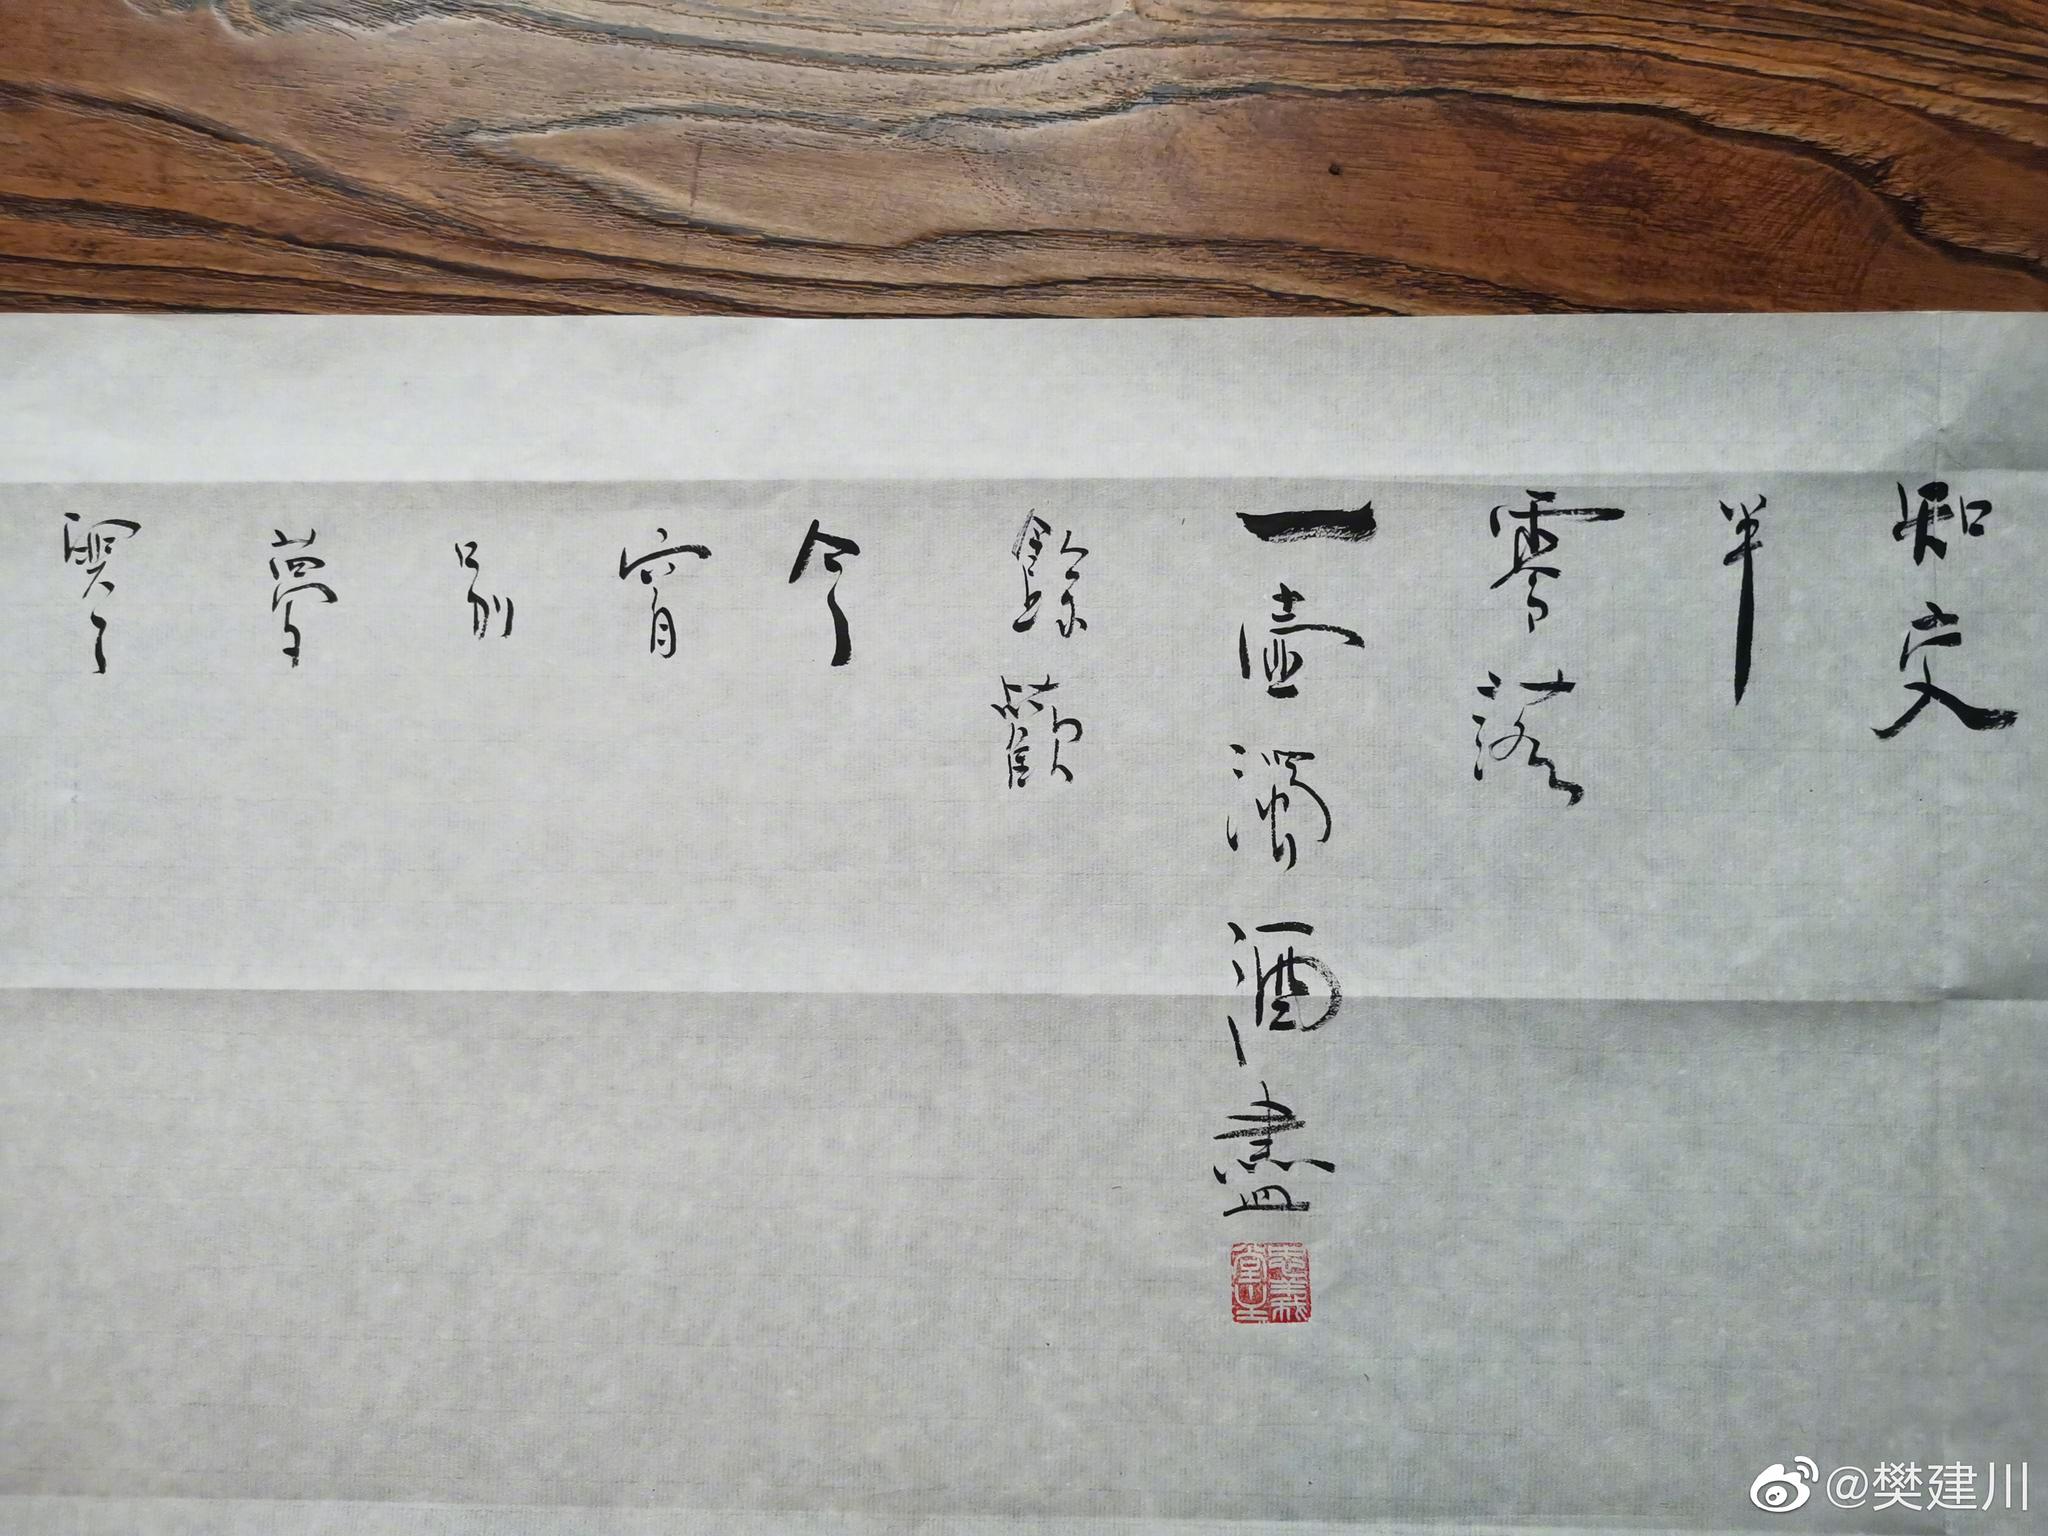 知交
半
零落
一壶濁酒盡
餘歡
今
宵
别
夢
寒
@樊建川